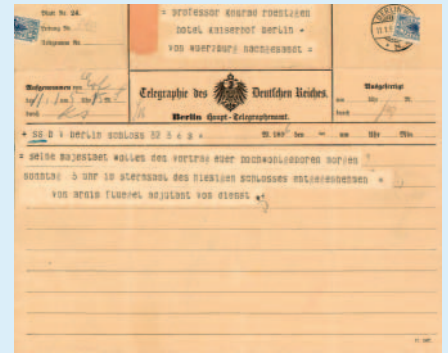 Blatt Nr. 24.
Leitung Nr.
Telegramm Nr.
= professor konrad roentgen
hotel kaiserhof berlin +
von wuerzburg nachgesandt =
BERLIN
Aufgenommen von
den um Uhr M.
durch
Telegraphie des Deutschen Reiches.
Berlin Haupt-Telegraphenamt.
Ausgefertigt
am Uhr M.
durch
+ SS D berlin schloss 32 5
M. 189 den um Uhr Min.
= seine majestaet wollen den vortrag euer hochwohlgeboren morgen
sonntag 5 uhr im sternsaal des hiesigen schlosses entgegennehmen +
von arnim fluegel adjutant vom dienst +